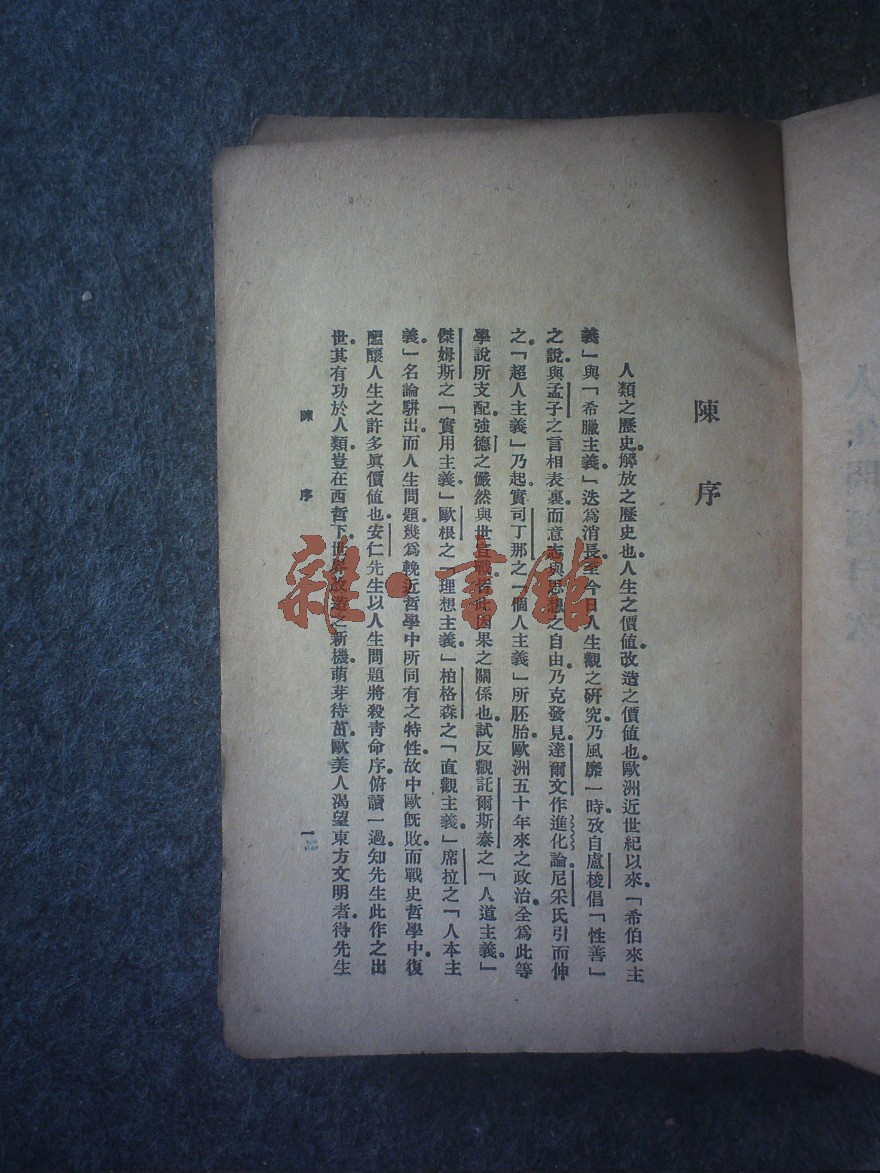 陳序
人類之歷史。解放之歷史也。人生之價値。改造之價値也。歐洲近世紀以來。「希伯來主
義」與「希臘主義」迭爲消長。至今日人生觀之研究。乃風靡一時。攷自盧梭倡「性善」
之說。與孟子之言相表裏。而意志與思想之自由。乃克發見。達爾文作進化論。尼采氏引而伸
之。「超人主義」乃起。實司丁那之「個人主義」所胚胎。歐洲五十年來之政治。全爲此等
學說所支配。強德之儼然與世宣戰。皆此因果之關係也。試反觀託爾斯泰之「人道主義」
傑姆斯之「實用主義」歐根之「理想主義」柏格森之「直觀主義」席拉之「人本主
義」名論駢出。而人生問題。幾爲輓近哲學中所同有之特性。故中歐旣敗。而戰史哲學中。復
醞釀人生之許多眞價値也。安仁先生以人生問題將殺靑命序。俯讀一過。知先生此作之出
世。其有功於人類。豈在西哲下。世界改造之新機。萌芽待茁。歐美人渴望東方文明者。得先生
陳序
一
雜·書館